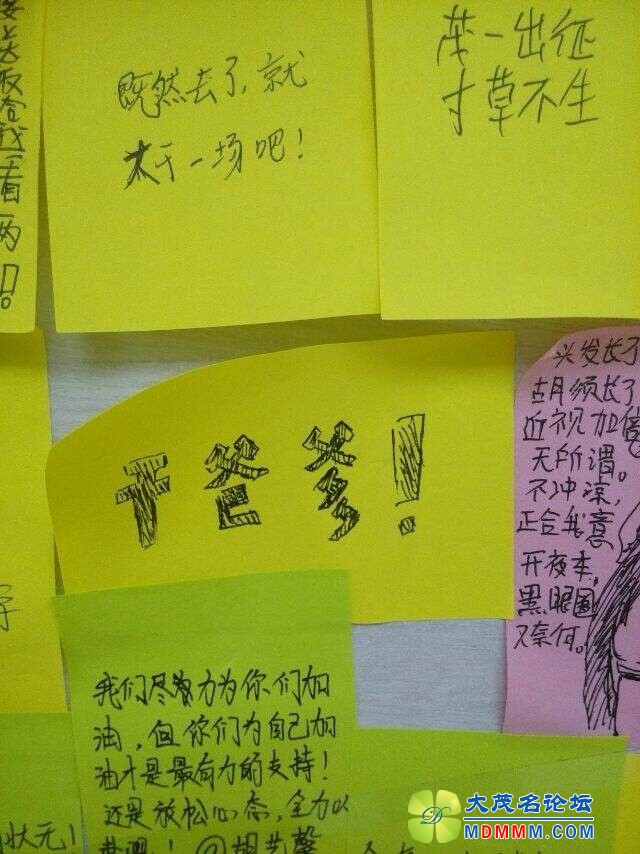 既然去了,就
大干一场吧!
茂一出征
寸草不生
看
两
口。
干爸爹!
头发长了
胡须长了
近视加倍
无所谓。
不冲凉,
正合我意
开夜车,
黑眼圈
又奈何。
我们尽努力为你们加
油,但你们为自己加
油才是最有力的支持!
还是放松心态,全力以
状元!
大茂名论坛
MDMMM.COM